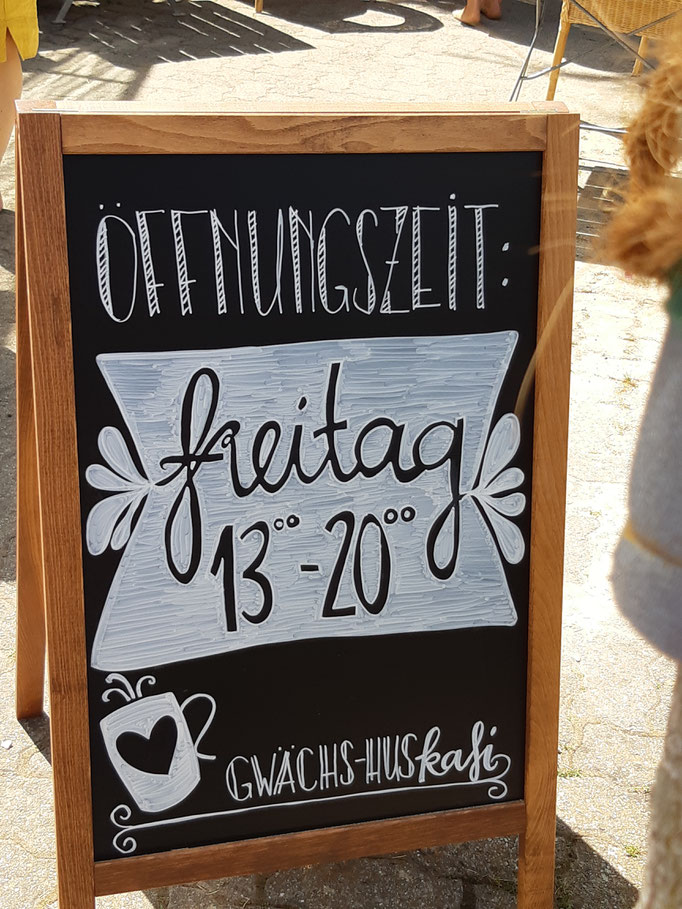 ÖFFNUNGSZEIT:
freitag
13°° - 20°°
GWÄCHS-HUSkafi